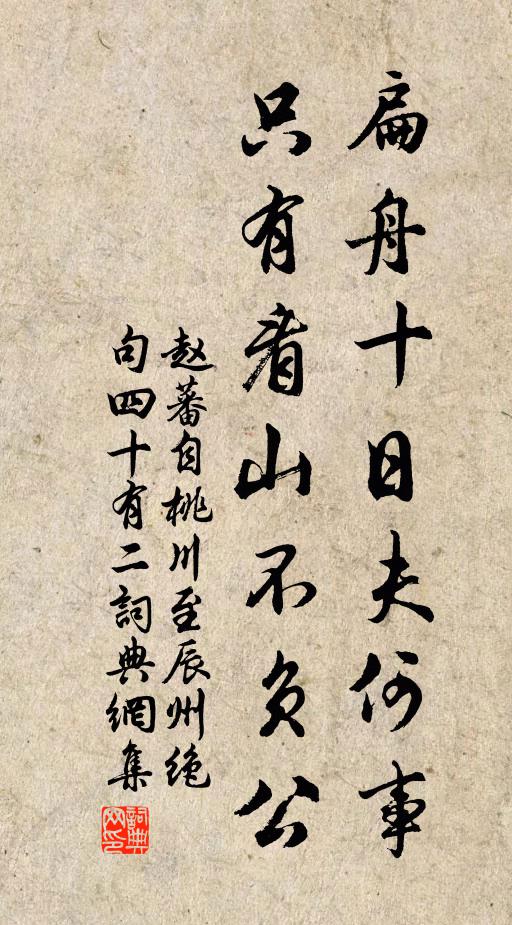 扁舟十日夫何事
只有看山不负公
赵蕃自桃川至辰州绝
句四十有二詞典網集
詞典
网印